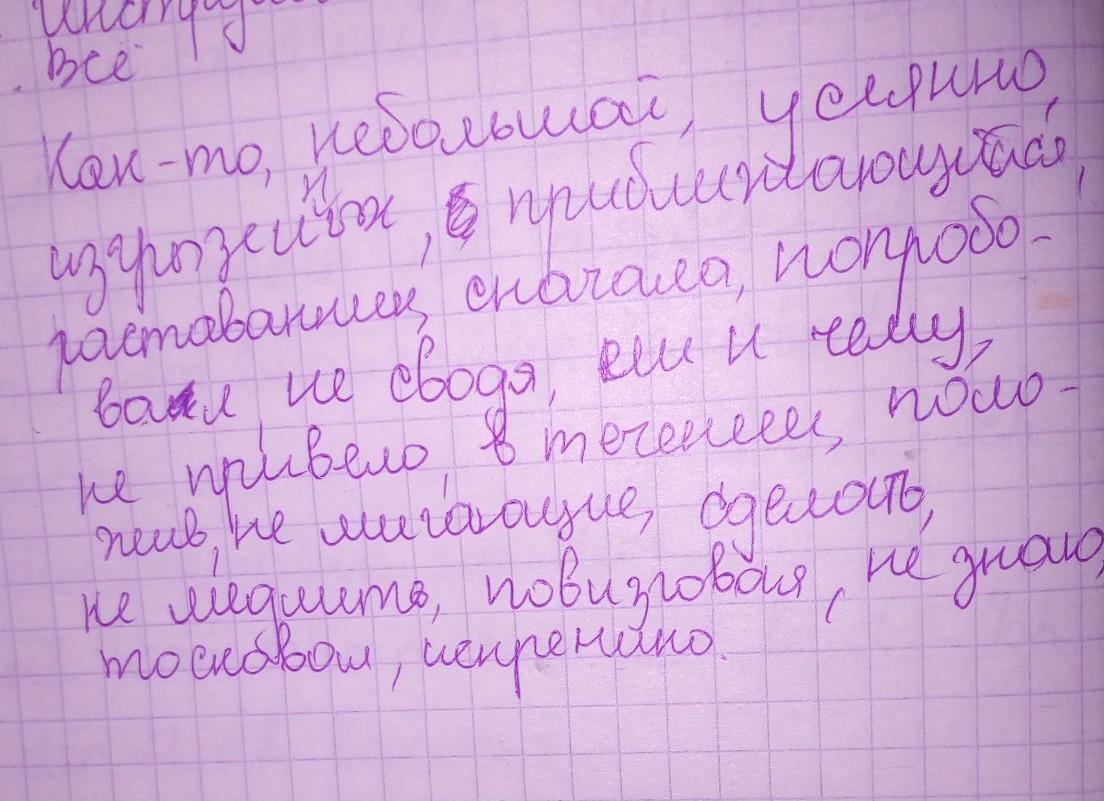 Всё
Как-то, небольшой, усеянно,
изгрызенных, приближающийся,
раставании, сначала, попробо-
вал, не сводя, ни к чему,
не привело, в течении, поло-
жив, не мигающие, сделать,
не медлить, повизговая, не знаю,
тосковал, искренно.